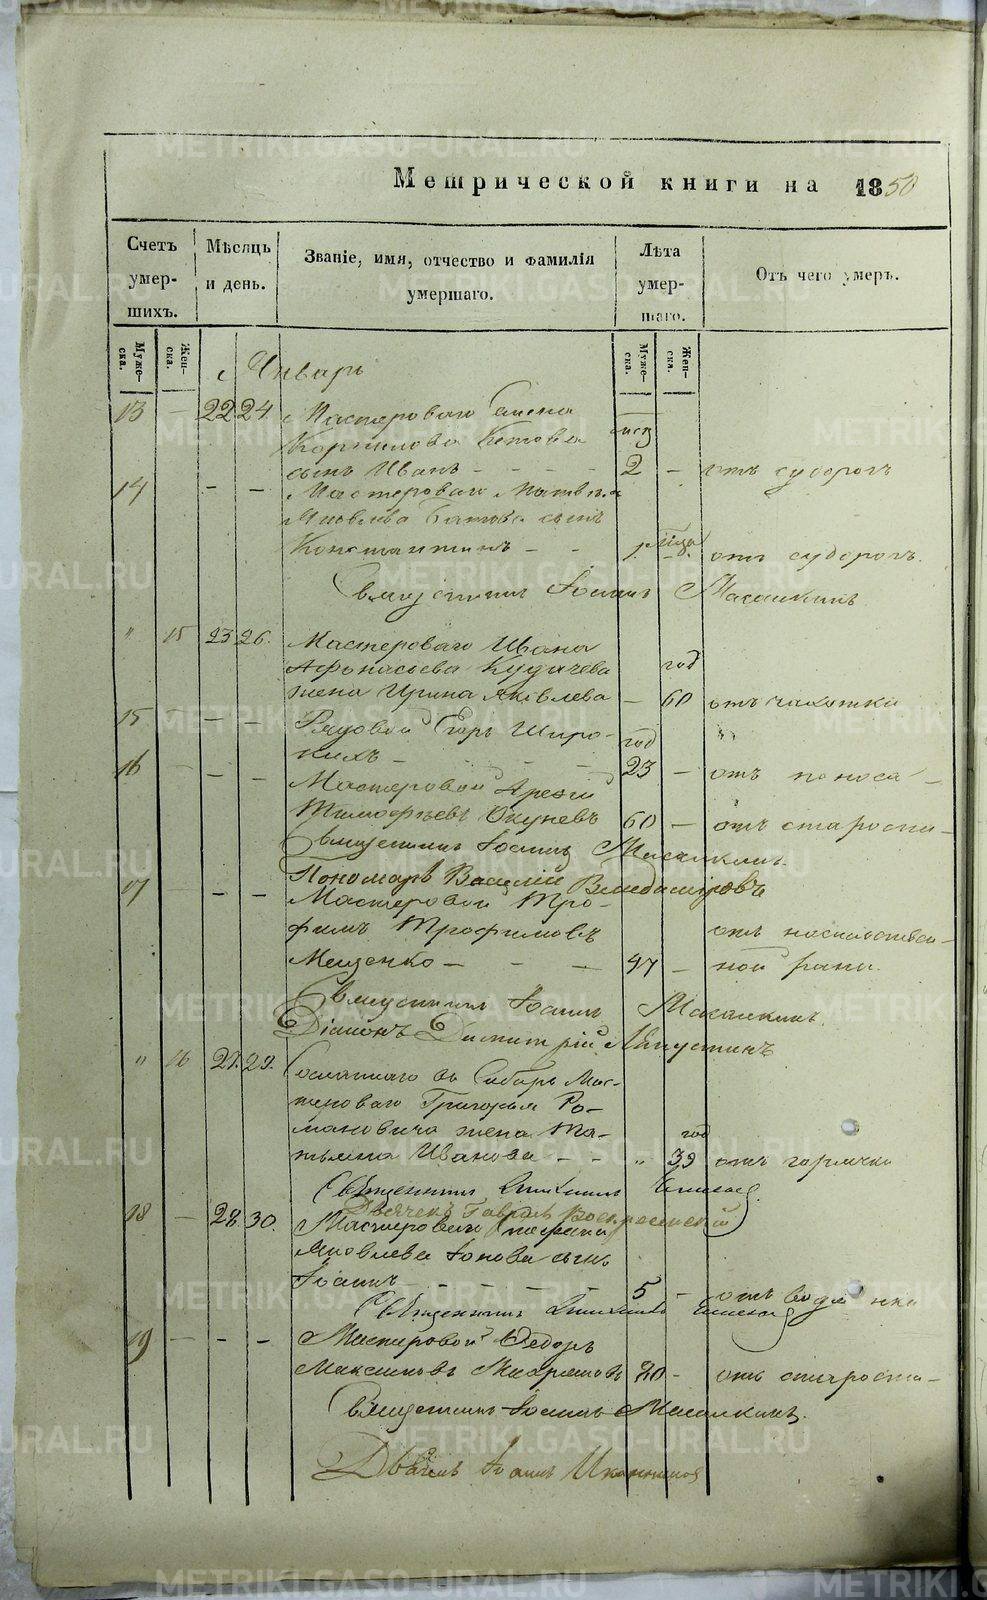 Метрической книги на 1850
Счетъ умер- шихъ.
Мѣсяцъ и день.
Званіе, имя, отчество и фамилія умершаго.
Лѣта умер- шаго.
Отъ чего умеръ.
Муже- ска.
Жен- ска.
Муже- ска.
Жен- ска.
Январь
13 — 22 24 Мастероваго Семена
Корнилова Котова
сынъ Иванъ — — — 2 — отъ судорогъ
14 — — Мастероваго Матвѣя
Яковлева сынъ
Константинъ — — 1 — отъ судорогъ.
Священникъ Іоаннъ Масалкинъ
" 15 23 26. Мастероваго Ивана
Афонасьева Кудачева год
жена Ирина Яковлева — 60 отъ чахотки
15 — — — Рядовой Егоръ Широ-
кихъ — — — — год 23 — отъ поноса —
16 — — — Мастеровой
Тимофѣевъ Окуневъ 60 — отъ старости —
Священникъ Іоаннъ Масалкинъ.
Пономарь Василій
17 — — — Мастеровой Тро-
фимъ Трофимовъ отъ
Мещенко — — — 47 — ной раны.
Священникъ Іоаннъ Масалкинъ.
Діаконъ Димитрій
" 16 27. 29. Сосланнаго въ Сибирь Мас-
тероваго Григорья Ро-
мановича жена Та- год
тьяна Иванова — — " 39 отъ горячки
Священникъ
Дьячекъ Гавріилъ Воскресенскій
18 — 28 30. Мастероваго
Яковлева Іонова сынъ
Іоаннъ — — — — 5 — отъ водянки
Священникъ
19 — — — Мастеровой Ѳедоръ
Максимовъ 80 — отъ старости —
Священникъ Іоаннъ Масалкинъ.
Іоаннъ
METRIKI.GASO-URAL.RU